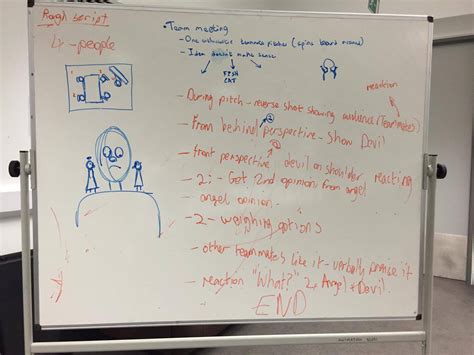 Rough script
4 - people
• Team meeting
- One enthusiastic teammate pitches (spins board round)
- Idea doesn't make sense
FISH
CAT
reaction
- During pitch - reverse shot showing audience (Teammates)
- From behind perspective - Show Devil
- front perspective devil on shoulder reacting
- 2: - Get 2nd opinion from angel
- angel opinion.
- 2 - weighing options
- other teammates like it - verbally praise it
- reaction "What?" 2, Angel + Devil.
END